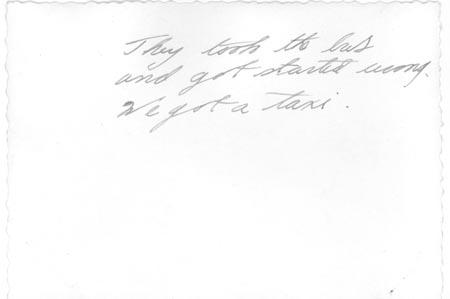 They took the bus
and got started wrong.
We got a taxi.